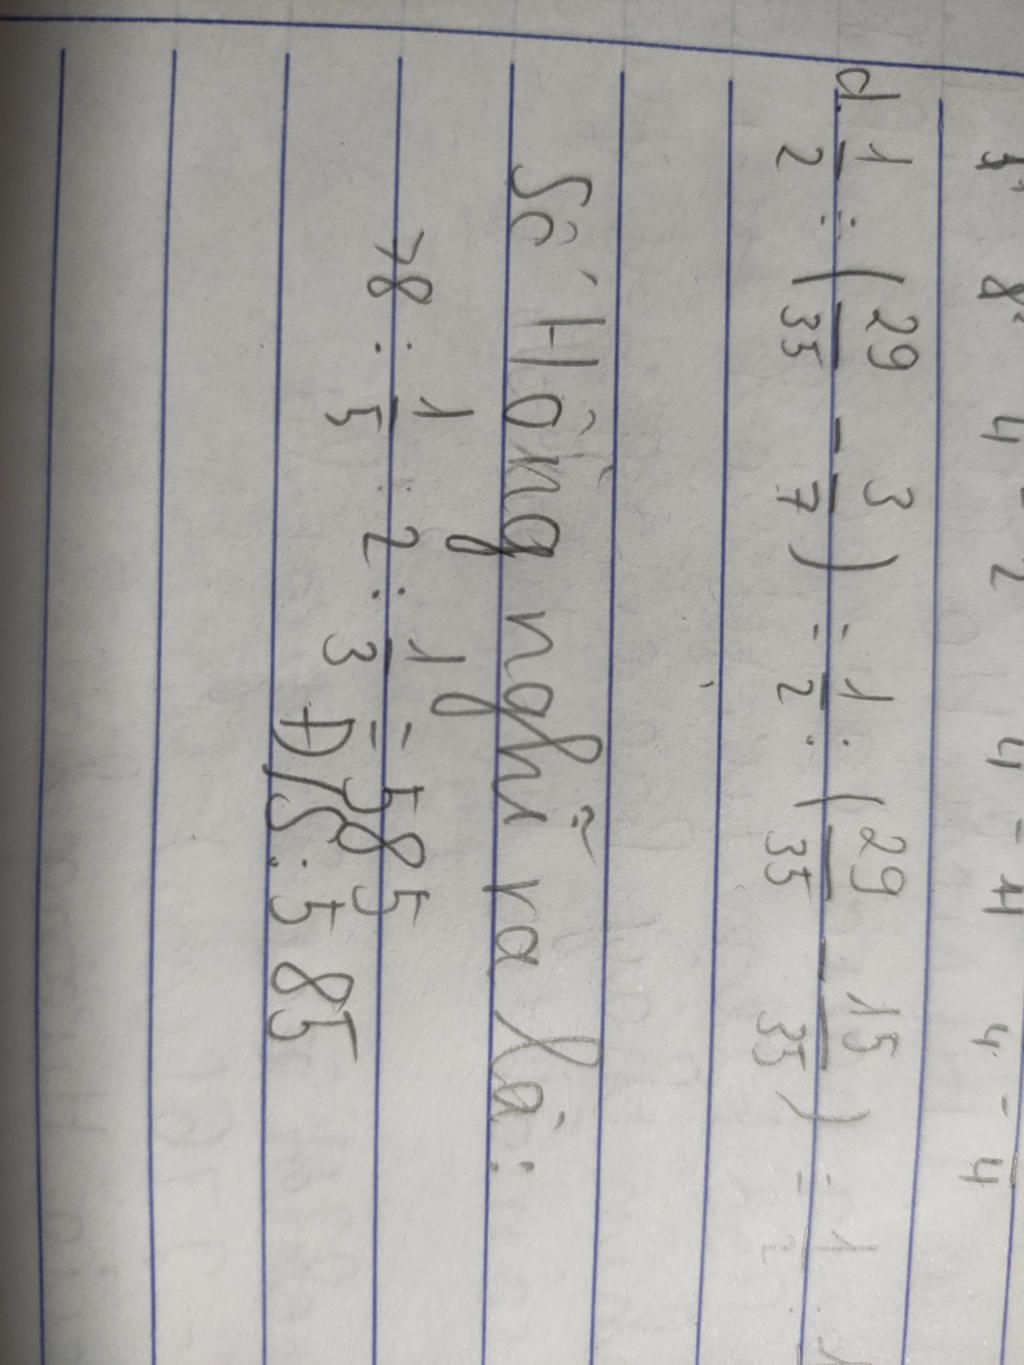 d. 1/2 : (29/35 - 3/7) = 1/2 : (29/35 - 15/35) = 1/2 :
Số Hồng nghĩ ra là:
78 : 1/5 : 2 : 1/3 = 585
Đ/S: 585